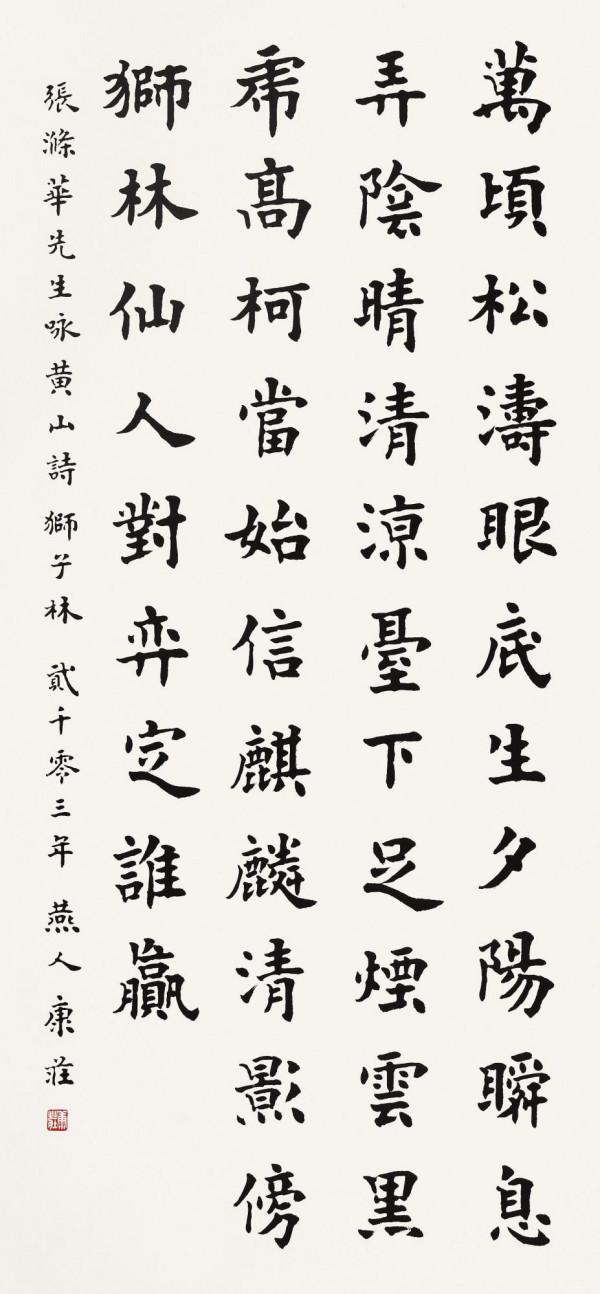 萬頃松濤眼底生夕陽瞬息
弄陰晴清涼臺下足煙雲黑
虎髙柯當始信麒麟清影傍
獅林仙人對弈定誰贏
張滌華先生咏黄山詩獅子林 貳千零三年 燕人康莊
康莊